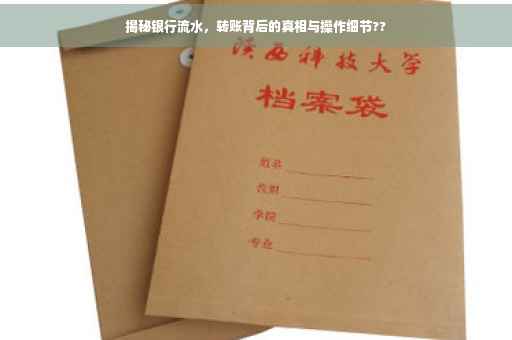 揭秘银行流水，转账背后的真相与操作细节??
陕西科技大学
档案袋
姓名
学院
专业